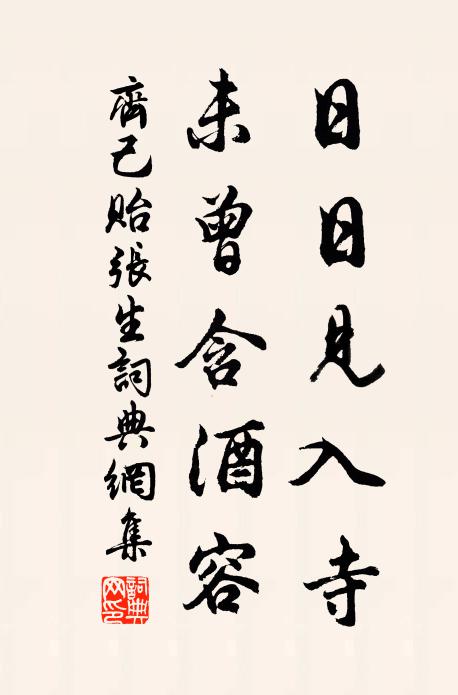 日日見入寺
未曾含酒容
齊己貽張生詞典網集
詞典網印